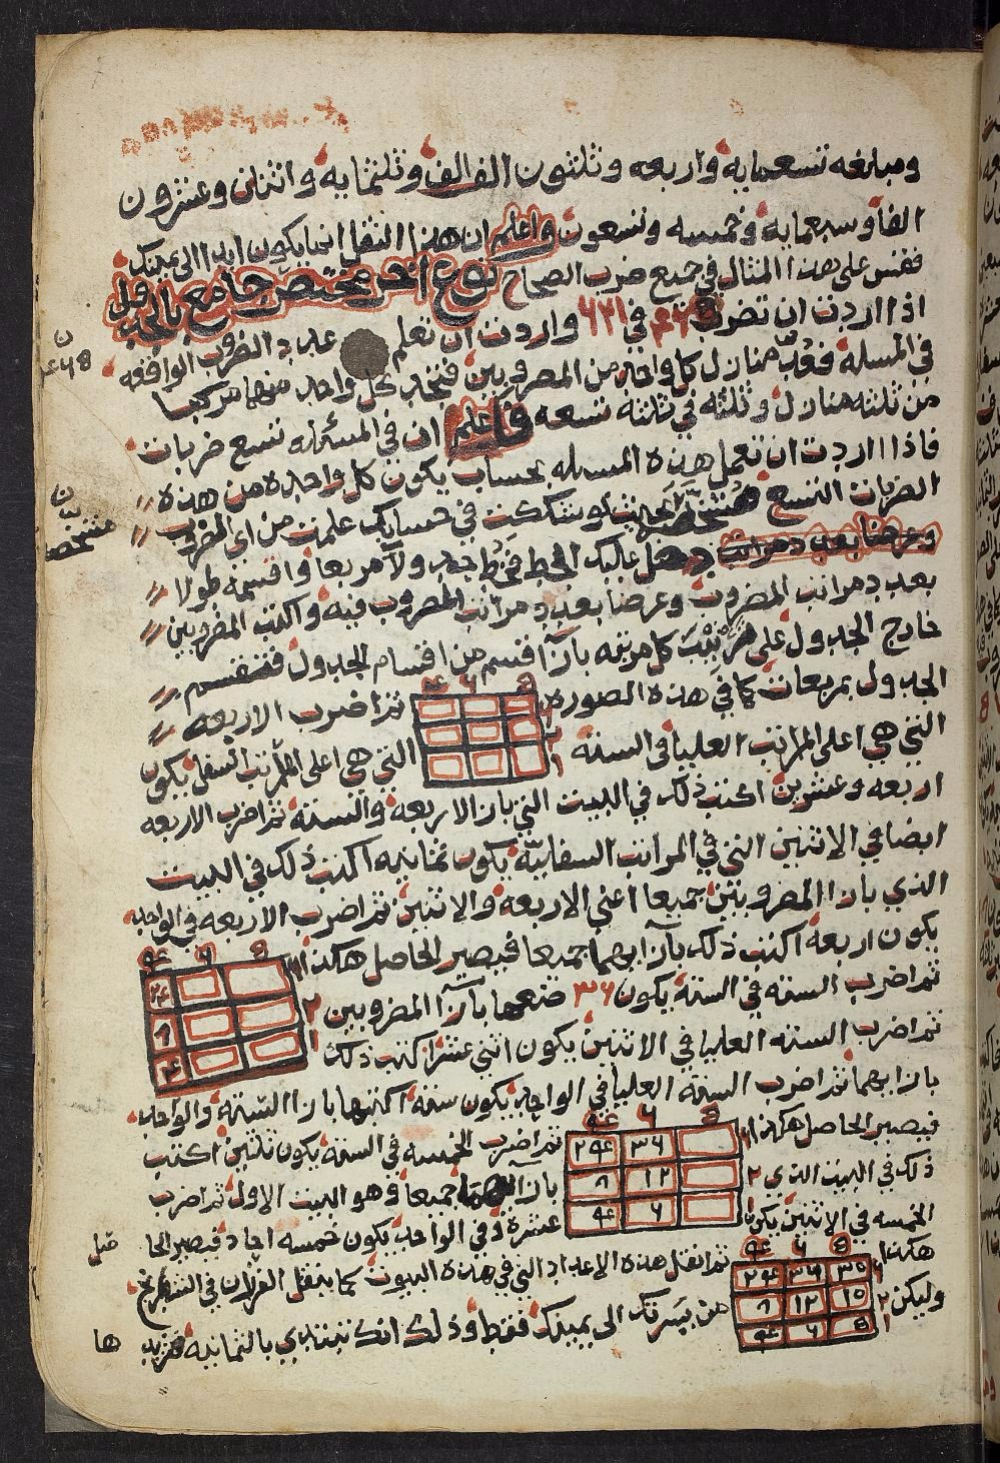 ومبلغه تسعمايه واربعه وثلثون الف الف وثلثمايه واثنان وعشرون
الفا وسبعمايه وخمسه وتسعون واعلم ان هذا النقل انما يكون ابدا الى يمينك
فقس على هذا المثال في جميع ضرب الصحاح نوع اخر مختصر جامع بالجدول
اذا اردت ان تضرب في ٦٢١ واردت ان تعلم عدد الضروب الواقعه
في المسله فعد منازل كل واحد من المضروبين فتجد كل واحد منهما مركبا
من ثلثه منازل وثلثه في ثلثه تسعه فاعلم ان في المسئله تسع ضربات
فاذا اردت ان تعمل هذه المسله بحساب يكون كل واحده من هذه
الضربات التسع متشخصه بحيث لو شككت في حسابك علمت من اي المضروب
دخل عليك الخطا فخط جدولا مربعا واقسمه طولا
بعدد مراتب المضروب وعرضا بعدد مراتب المضروب فيه واكتب المضروبين
خارج الجدول على كل مرتبه بازا قسم من اقسام الجدول فتقسم
الجدول بمربعات كما في هذه الصوره ثم اضرب الاربعه
التي هي اعلى المراتب العليا في السته التي هي اعلى المراتب السفلى يكون
اربعه وعشرين اكتب ذلك في البيت الذي بازا الاربعه والسته ثم اضرب الاربعه
ايضا في الاثنين التي في المراتب السفليه يكون ثمانيه اكتب ذلك في البيت
الذي بازا المضروبين جميعا اعني الاربعه والاثنين ثم اضرب الاربعه في الواحد
يكون اربعه اكتب ذلك بازايهما جميعا فيصير الحاصل هكذا
ثم اضرب السته في السته يكون ٣٦ ضعها بازا المضروبين
ثم اضرب السته العليا في الاثنين يكون اثني عشر اكتب ذلك
بازايهما ثم اضرب السته العليا في الواحد يكون سته اكتبها بازا السته والواحد
فيصير الحاصل هكذا ثم اضرب الخمسه في السته يكون ثلثين اكتب
ذلك في البيت الذي بازا جميعا وهو البيت الاول ثم اضرب
الخمسه في الاثنين يكون عشره وفي الواحد يكون خمسه احاد فيصير الحا صل
هكذا ثم انقل هذه الاعداد التي في هذه البيوت كما ينقل الفرزان في الشطرنج
وليكن من يسرتك الى يمينك فقط وذلك انك تبتدي بالثمانيه فتزيد ها